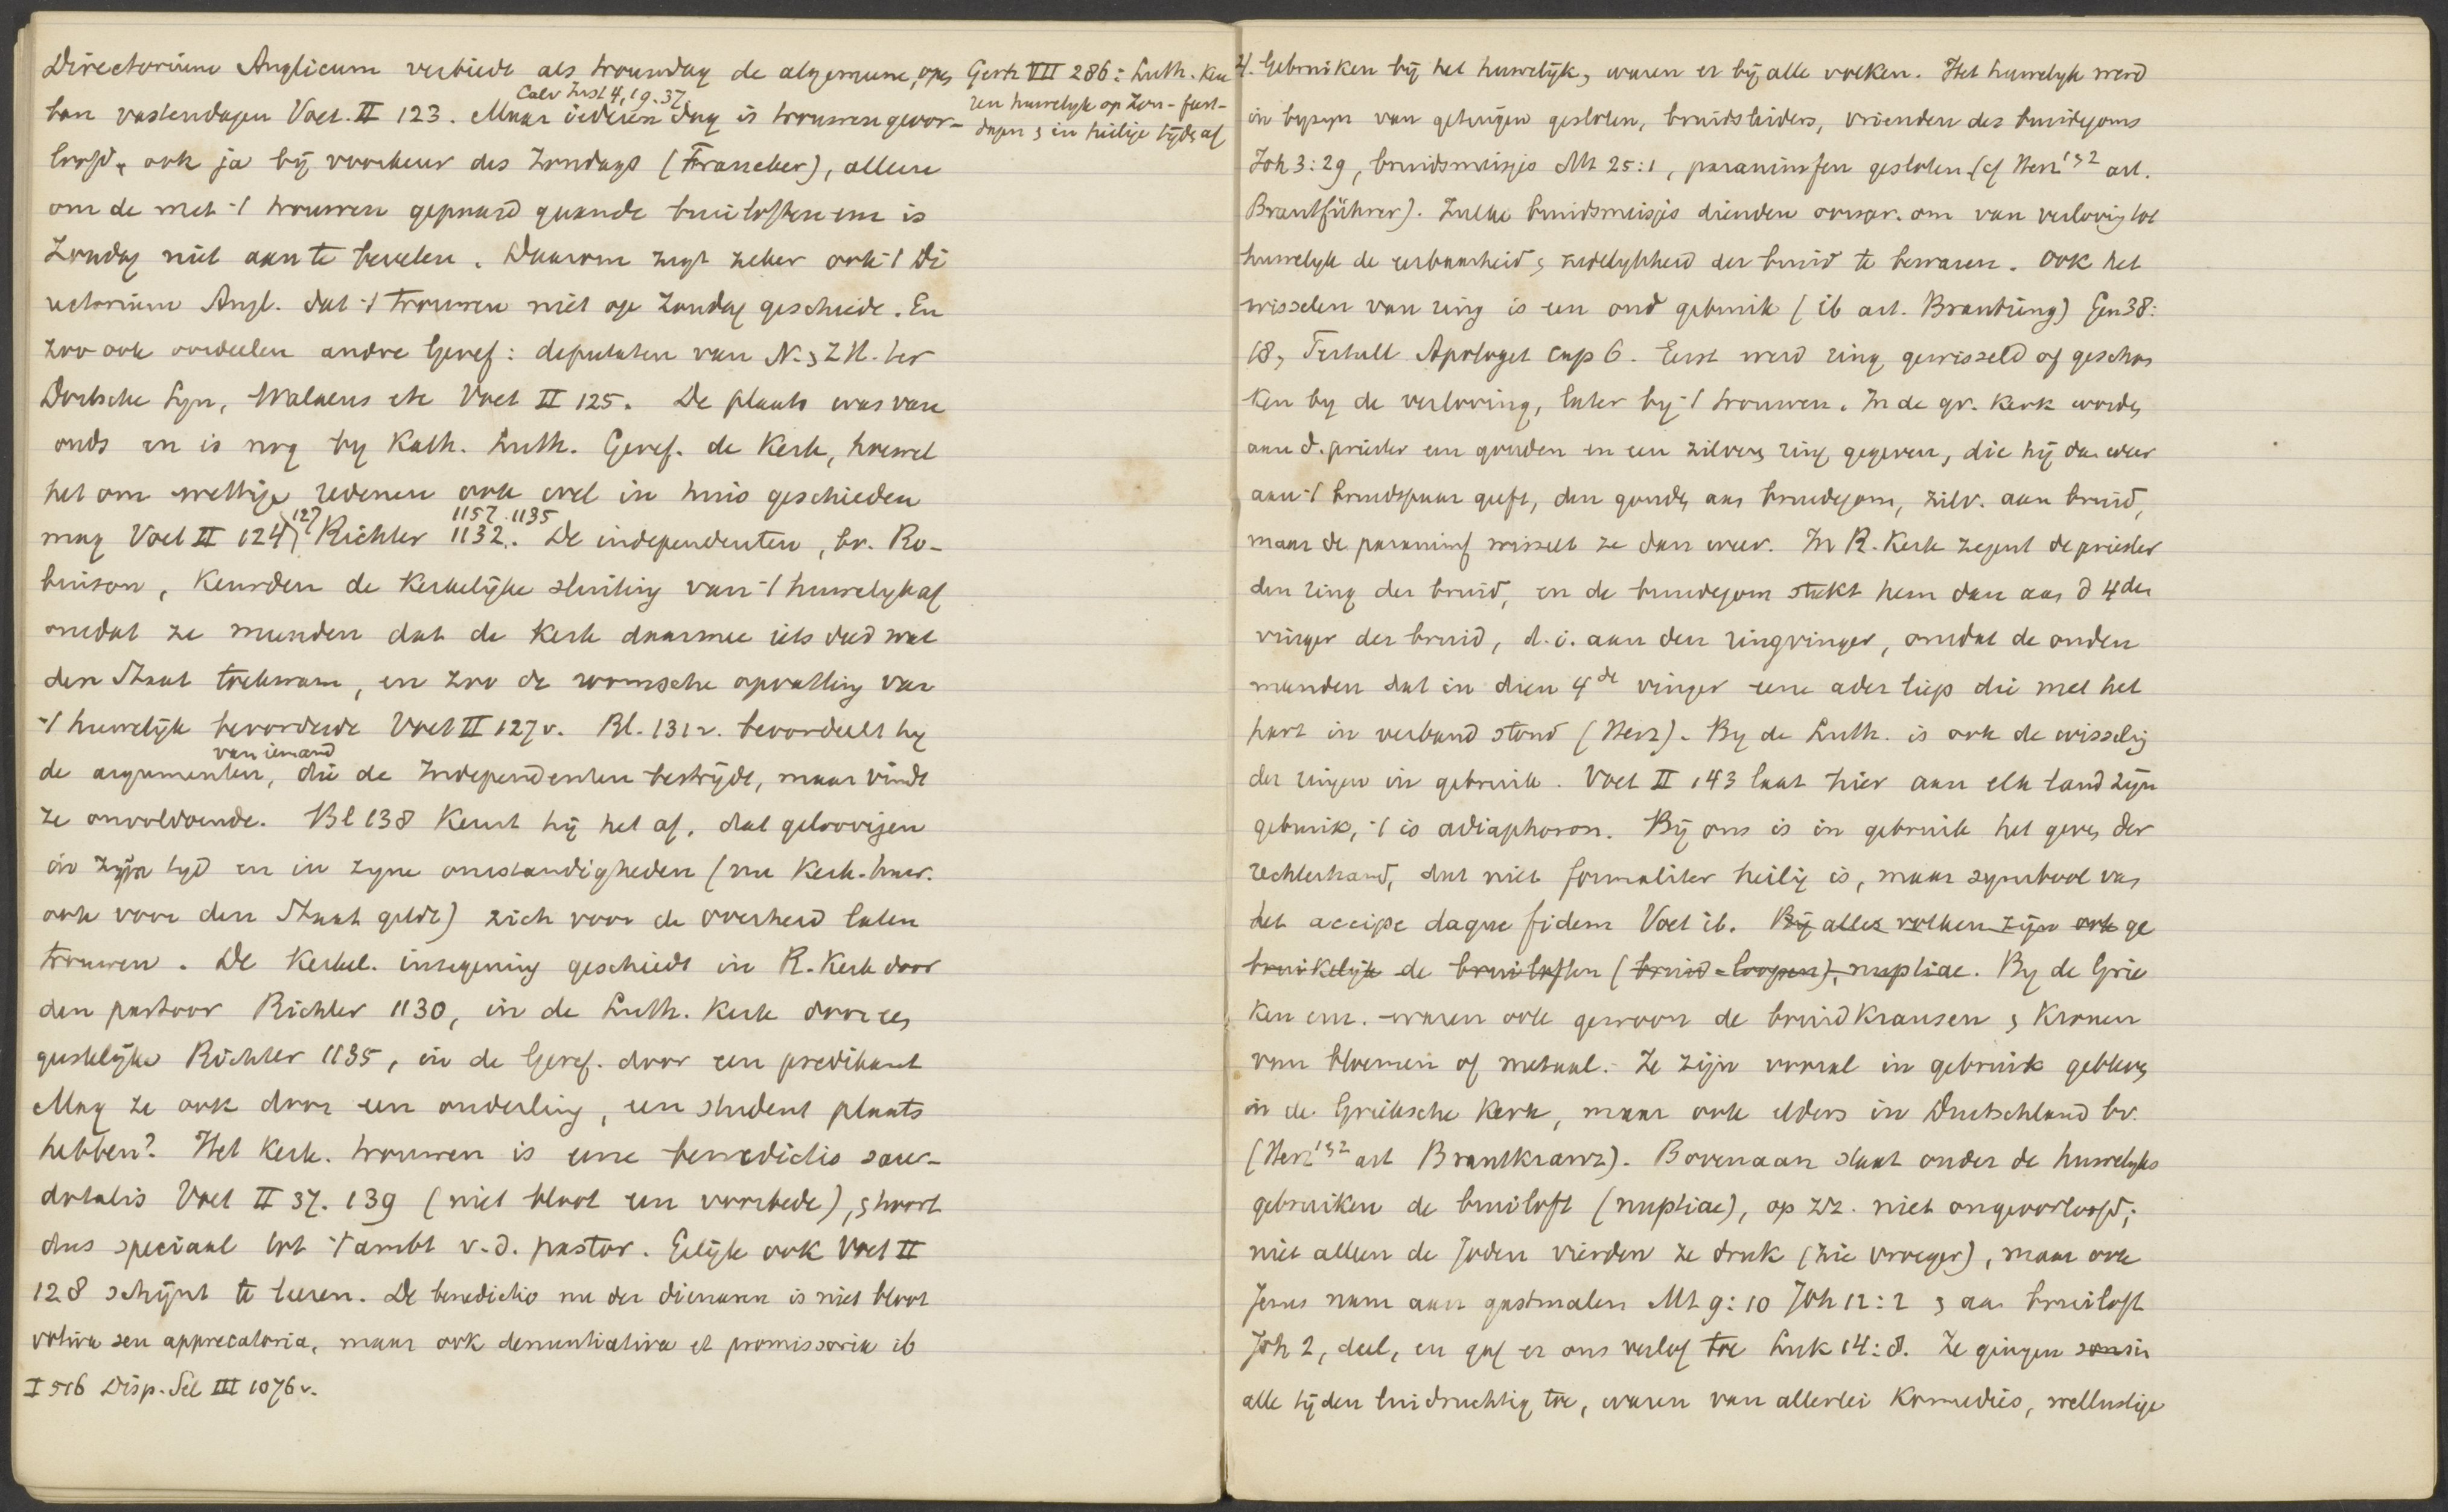 Directorium Anglicum verbiedt als trouwdag de algemeene, open
Calv Inst 4, 19. 37.
bare vastendagen Voet. II 123. Maar iederen dag is trouwen geoor-
loofd, ook ja bij voorkeur des Zondags (Franeker), alleen
om de met 't trouwen gepaard gaande bruiloften enz is
Zondag niet aan te bevelen. Daarom zegt zeker ook 't Di
rectorium Angl. dat 't trouwen niet op Zondag geschiede. En
zoo ook oordeelen andre Geref: deputaten van N. & Z H. ter
Dortsche Syn, Walaeus etc Voet II 125. De plaats was van
ouds en is nog by Kath. Luth. Geref. de Kerk, hoewel
het om wettige redenen ook wel in huis geschieden
127 1157. 1135
mag Voet II 124, Richter 1132. De independenten, bv. Ro-
binson, keurden de kerkelijke sluiting van 't huwelyk af
omdat ze meenden dat de Kerk daarmee iets deed wat
den Staat toekwam, en zoo de roomsche opvatting van
't huwelijk bevorderde Voet II 127v. Bl. 131v. beoordeelt hy
van iemand
de argumenten, die de Independenten bestrijdt, maar vindt
ze onvoldoende. Bl 138 keurt hij het af, dat geloovigen
in zijn tyd en in zyne omstandigheden (nu Kerk. huw.
ook voor den Staat geldt) zich voor de overheid laten
trouwen. De Kerkel. inzegening geschiedt in R. Kerk door
den pastoor Richter 1130, in de Luth. Kerk door een
geestelijke Richter 1135, in de Geref. door een predikant
Mag ze ook door een ouderling, een student plaats
hebben? Het Kerk. trouwen is eene benedictio sacer-
dotalis Voet II 37. 139 (niet bloot een voorbede), & hoort
dus speciaal tot 't ambt v. d. pastor. Gelijk ook Voet II
128 schijnt te leeren. De benedictio nu der dienaren is niet bloot
votiva seu apprecatoria, maar ook denuntiativa et promissoria ib
I 516 Disp. Sel III 1076v.
Gerh VII 286: Luth. keu
ren huwelyk op Zon- feest-
dagen & in heilige tijden af
4. Gebruiken bij het huwelijk, waren er bij alle volken. Het huwelyk werd
in byzyn van getuigen gesloten, bruidsleiders, vrienden des bruidegoms
Joh 3:29, bruidsmeisjes Mt 25:1, paranimfen gesloten (cf Herz 1 & 2 art.
Brautführer). Zulke bruidsmeisjes dienden oorspr. om van verloving tot
huwelyk de eerbaarheid & zedelykheid der bruid te bewaren. Ook het
wisselen van ring is een oud gebruik (ib art. Brautring) Gen 38:
18, Tertull Apologet cap 6. Eerst werd ring gewisseld of geschon
ken by de verloving, later by 't trouwen. In de gr. Kerk worden
aan d. priester een gouden en een zilveren ring gegeven, die hij dan weer
aan 't bruidspaar geeft, den gouden aan bruidegom, zilv. aan bruid,
maar de paranimf wisselt ze dan weer. In R. Kerk zegent de priester
den ring der bruid, en de bruidegom steekt hem dan aan d 4den
vinger der bruid, d.i. aan den ringvinger, omdat de ouden
meenden dat in dien 4de vinger eene ader liep die met het
hart in verband stond (Herz). By de Luth. is ook de wisseling
der ringen in gebruik. Voet II 143 laat hier aan elk land zijn
gebruik, 't is adiaphoron. Bij ons is in gebruik het geven der
rechterhand, dat niet formaliter heilig is, maar symbool van
het accipe daque fidem Voet ib. Bij alle volken zijn ook ge
bruikelijk de bruiloften (bruid-loopen), nuptiae. By de Grie
ken enz. waren ook gewoon de bruidkransen & kronen
van bloemen of metaal. Ze zijn vooral in gebruik gebleven
in de Grieksche Kerk, maar ook elders in Duitschland bv.
(Herz 1 & 2 art Brautkranz). Bovenaan staat onder de huwelyks
gebruiken de bruiloft (nuptiae), op zz. niet ongeoorloofd;
niet alleen de Joden vierden ze druk (zie vroeger), maar ook
Jezus nam aan gastmalen Mt 9:10 Joh 12:2 & aan bruiloft
Joh 2, deel, en gaf er ons verlof toe Luk 14:8. Ze gingen in
alle tijden luidruchtig toe, waren van allerlei komedies, wellustige